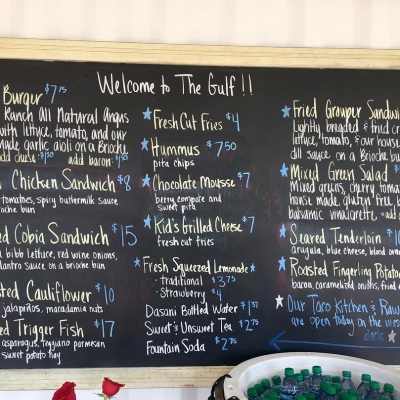 Welcome to The Gulf!!
Burger $7.75
Ranch All Natural Angus
with lettuce, tomato, and our
made garlic aioli on a Brioche
add bacon:
Chicken Sandwich $8
tomatoes, spicy buttermilk sauce
brioche bun
Cobia Sandwich $15
bibb lettuce, red wine onions,
cilantro sauce on a brioche bun
Cauliflower $10
jalapeños, macadamia nuts
Trigger Fish $17
asparagus, reggiano parmesan
sweet potato hay
Fresh Cut Fries $4
Hummus $7.50
pita chips
Chocolate Mousse $7
berry compote and
sweet pita
Kid's Grilled Cheese $7
fresh cut fries
Fresh Squeezed Lemonade
· traditional $3.75
· Strawberry $4
Dasani Bottled Water $1.37
Sweet & Unsweet Tea $2.75
Fountain Soda $2.75
Fried Grouper Sandwich
Lightly breaded & fried
lettuce, tomato, & our house
dill sauce on a Brioche
Mixed Green Salad
Mixed greens, cherry
house made, gluten free
balsamic vinaigrette
Seared Tenderloin $10
arugula, blue cheese,
Roasted Fingerling
bacon, caramelized onions,
Our Taco Kitchen & Raw
are open today on the
deck